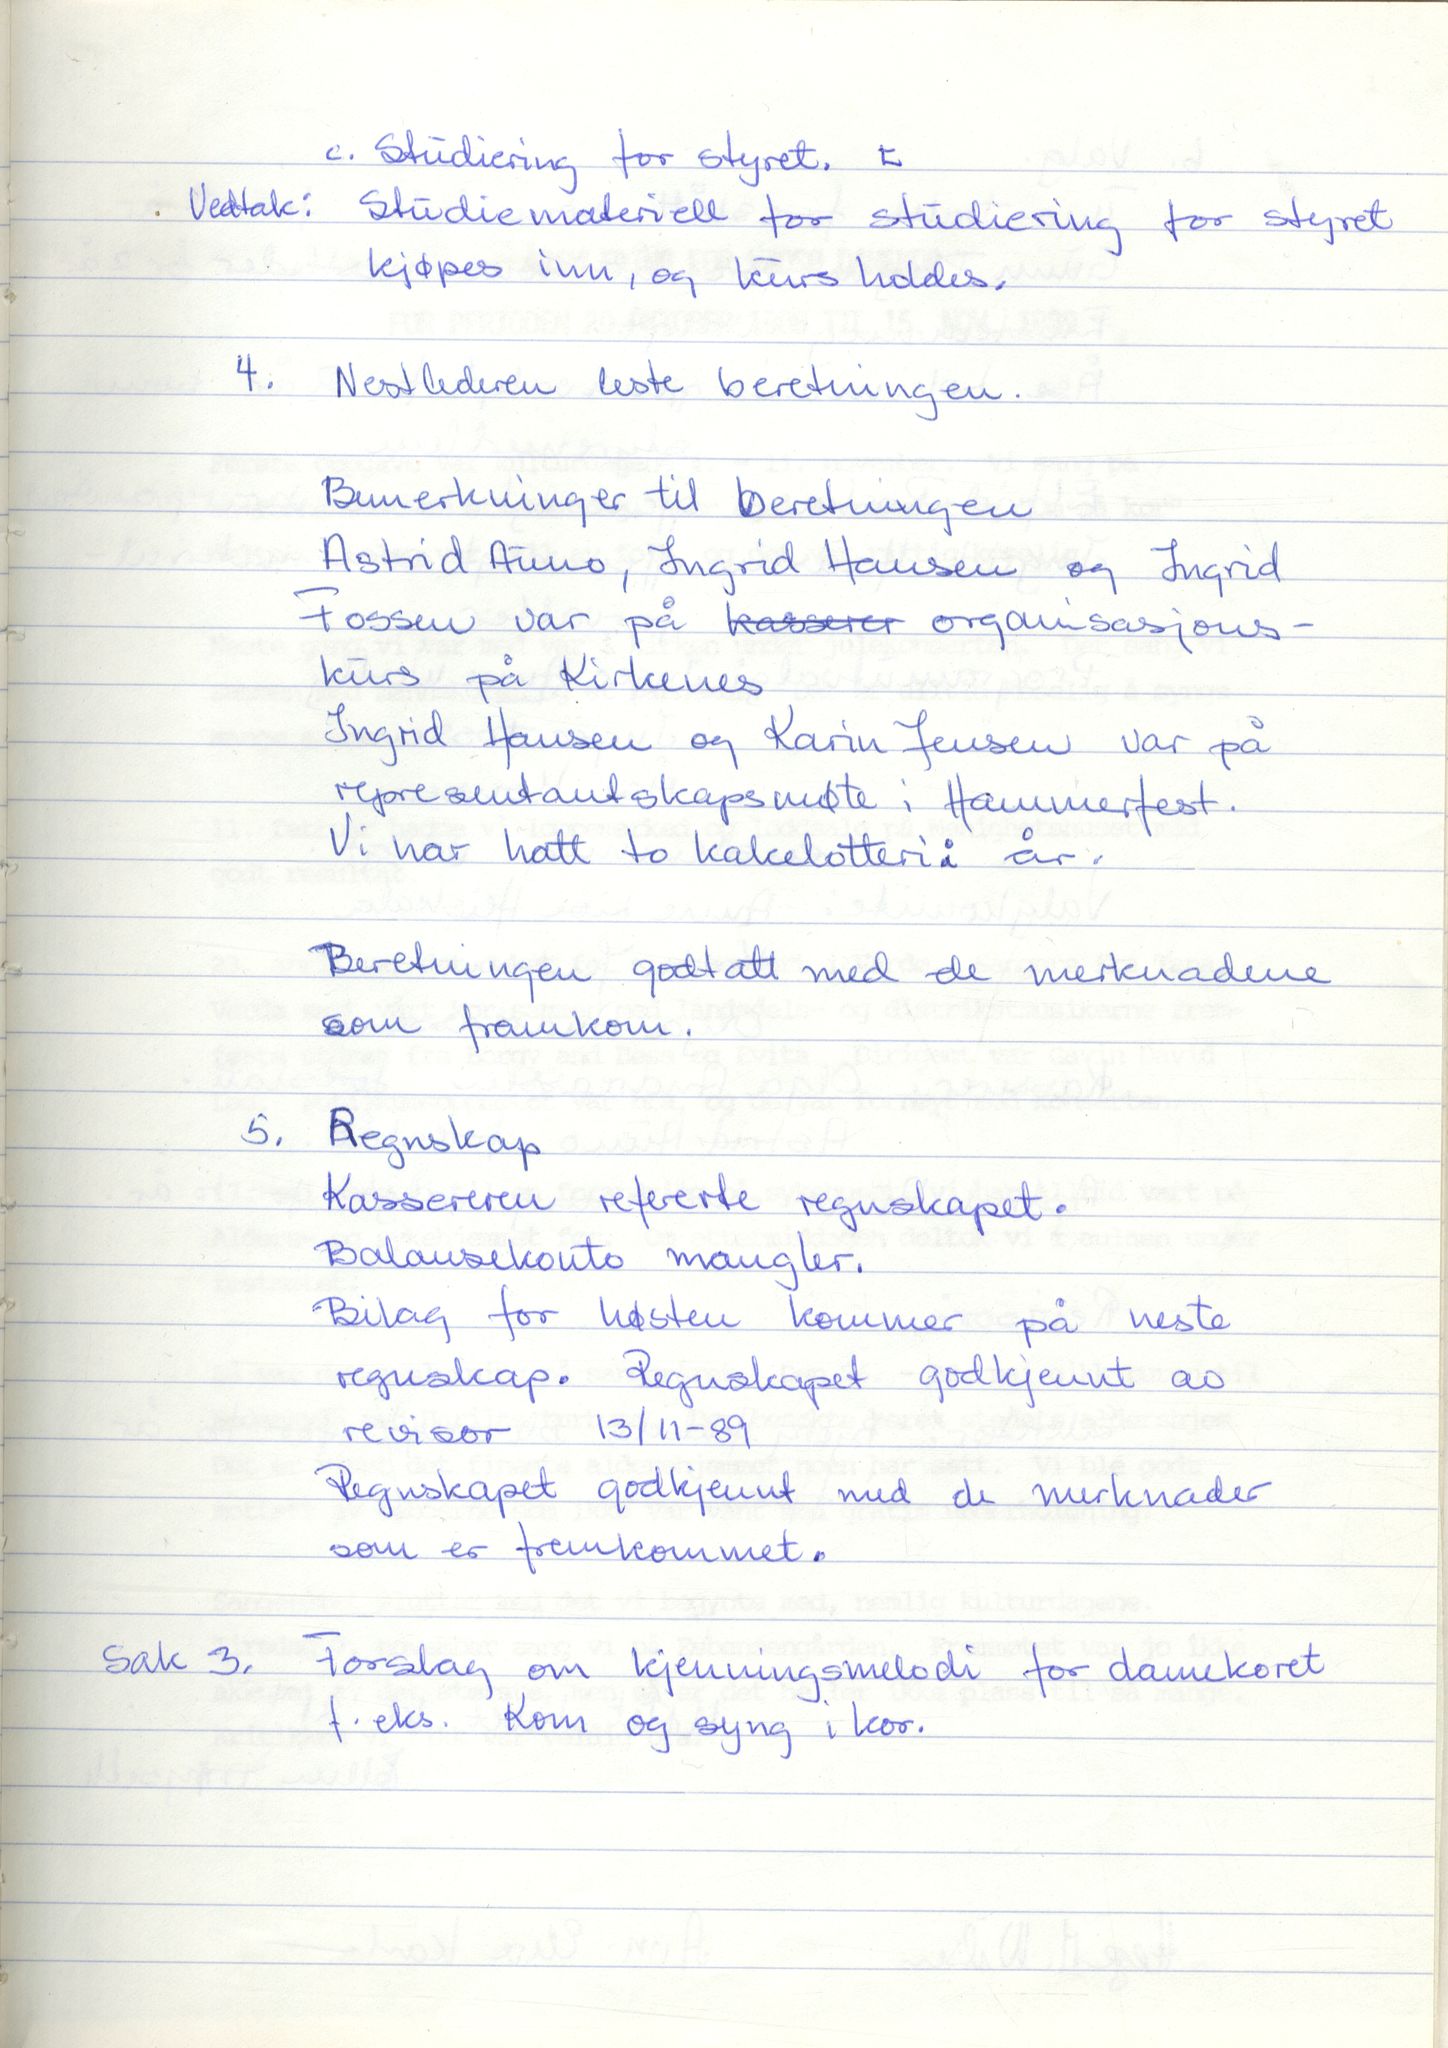 c. Studiering for styret.
Vedtak: Studiemateriell for studiering for styret
kjøpes inn, og kurs holdes.
4. Nestlederen leste beretningen.
Bemerkninger til beretningen
Astrid Aune, Ingrid Hansen og Ingrid
Fossen var på kasserer organisasjons-
kurs på Kirkenes
Ingrid Hansen og Karin Jensen var på
representantskapsmøte i Hammerfest.
Vi har hatt to kakelotteri i år.
Beretningen godtatt med de merknadene
som framkom.
5. Regnskap
Kassereren refererte regnskapet.
Balansekonto mangler.
Bilag for høsten kommer på neste
regnskap. Regnskapet godkjennt av
revisor 13/11-89
Regnskapet godkjennt med de merknader
som er fremkommet.
Sak 3. Forslag om kjenningsmelodi for damekoret
f. eks. Kom og syng i kor.